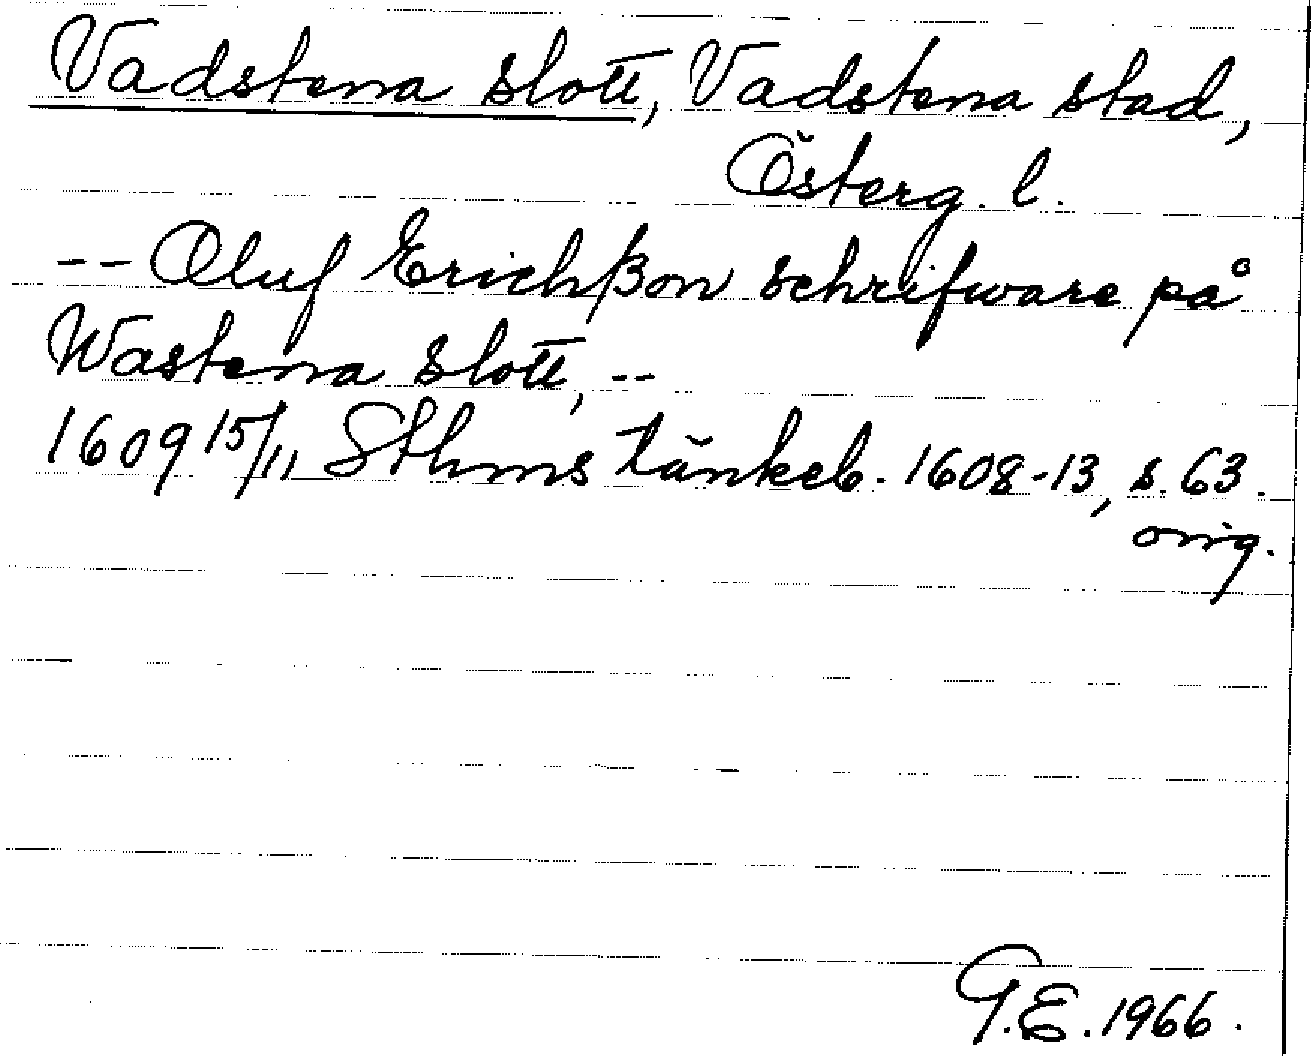 Vadstena slott, Vadstena stad,
Österg. l.
-- Oluf Erichßon schrifware på
Wastena slott, --
1609 15/11, Sthms tänkeb. 1608-13, s. 63.
orig.
G.E. 1966.